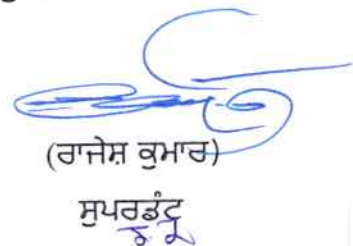 (ਰਾਜੇਸ਼ ਕੁਮਾਰ)
ਸੁਪਰਡੰਟ